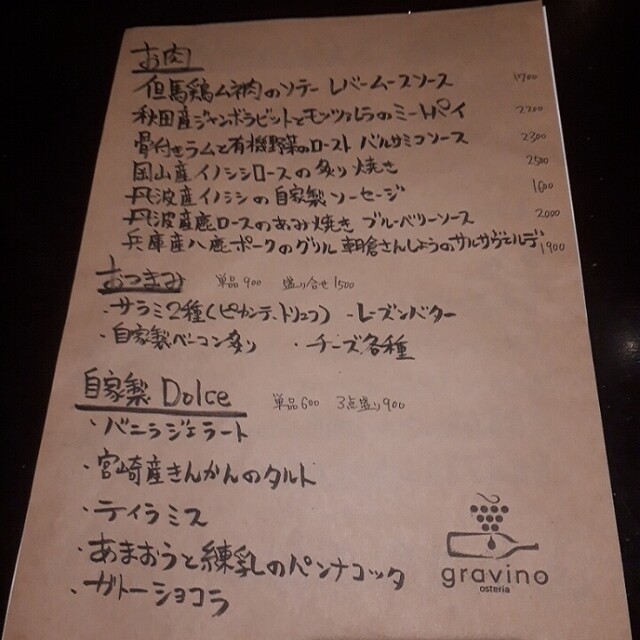 お肉
但馬鶏ムネ肉のソテー レバームースソース 1700
秋田産ジャンボラビットとモッツァレラのミートパイ 2200
骨付きラムと有機野菜のロースト バルサミコソース 2300
岡山産イノシシロースの炙り焼き 2500
丹波産イノシシの自家製ソーセージ 1600
丹波産鹿ロースのあみ焼き ブルーベリーソース 2000
兵庫産八鹿ポークのグリル 朝倉さんしょうのサルサヴェルデ 1900
おつまみ 単品900 盛り合せ1500
・サラミ2種(ピカンテ、トリュフ) ・レーズンバター
・自家製ベーコン炙り ・チーズ各種
自家製 Dolce 単品600 3点盛り900
・バニラジェラート
・宮崎産きんかんのタルト
・ティラミス
・あまおうと練乳のパンナコッタ
・ガトーショコラ
gravino
osteria